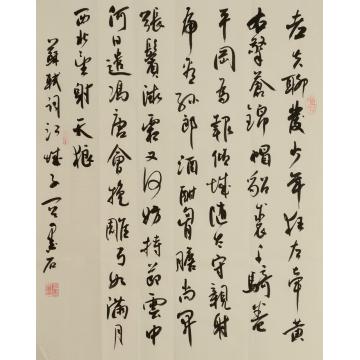 老夫聊發少年狂左牽黃
右擎蒼錦帽貂裘千騎卷
平岡為報傾城隨太守親射
虎看孫郎酒酣胸膽尚開
張鬢微霜又何妨持節雲中
何日遣馮唐會挽雕弓如滿月
西北望射天狼
蘇軾詞江城子墨石